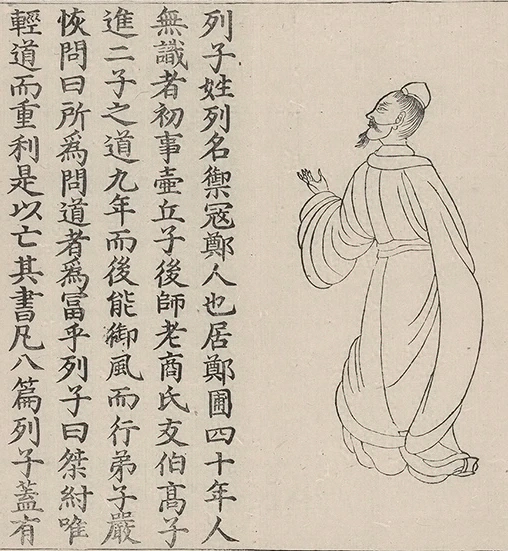 列子姓列名禦冦鄭人也居鄭圃四十年人
無識者初事壷丘子後師老商氏友伯髙子
進二子之道九年而後能御風而行弟子嚴
恢問曰所爲問道者爲富乎列子曰桀紂唯
輕道而重利是以亡其書凡八篇列子蓋有